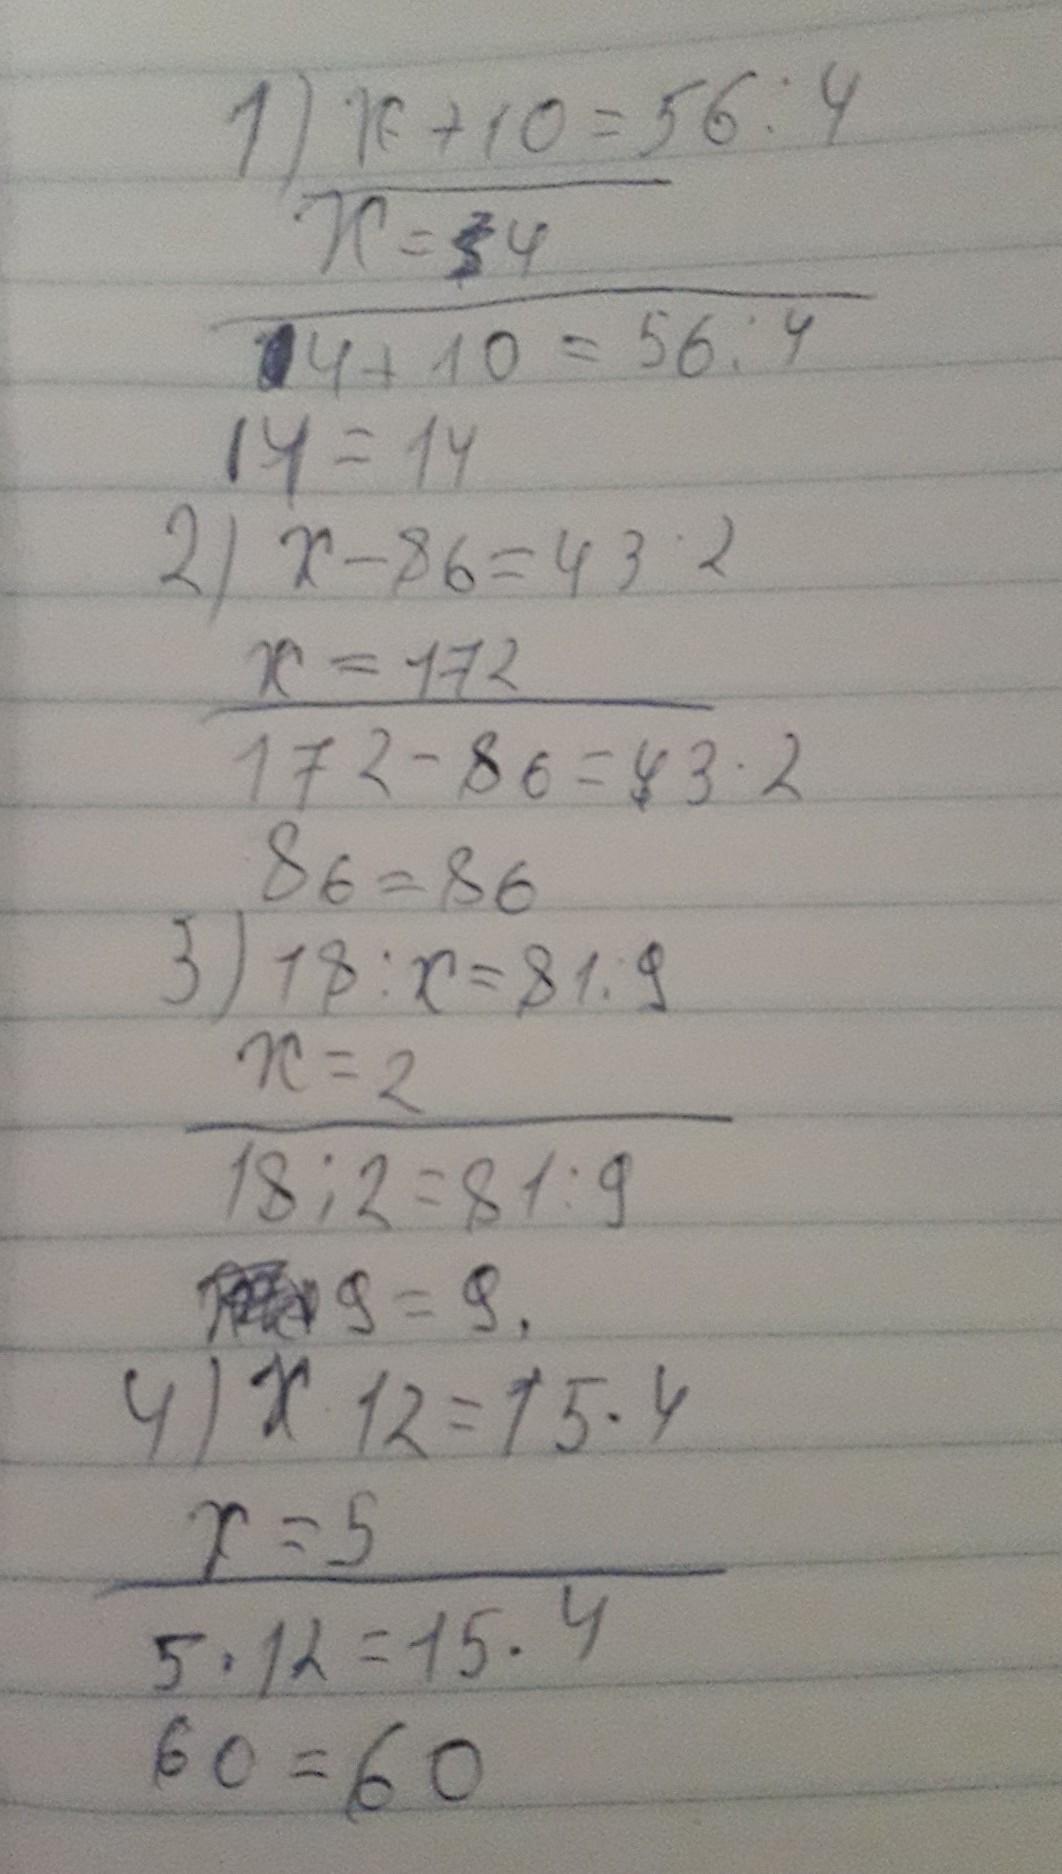 1) x+10=56:4
x=4
4+10=56:4
14=14
2) x-86=43·2
x=172
172-86=43·2
86=86
3) 18:x=81:9
x=2
18:2=81:9
9=9.
4) x·12=15·4
x=5
5·12=15·4
60=60